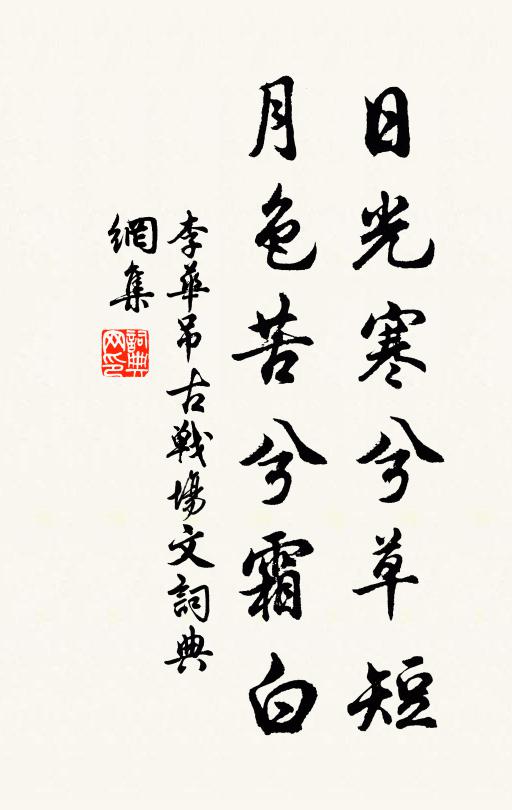 日光寒兮草短
月色苦兮霜白
李華吊古戰場文詞典
網集
詞典
网印